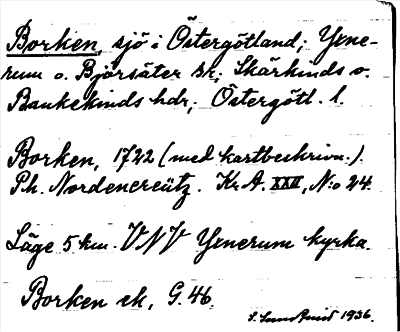 Borken, sjö i Östergötland; Yxne-
rum o. Björsäter sr; Skärkinds o.
Bankekinds hdr; Östergötl. l.
Borken, 1722 (med kartbeskrivn.).
Ph. Nordencreütz. Kr. A. XXII, N:o 24.
Läge 5 km. VNV Yxnerum kyrka.
Borken ek, G. 46.
1936.